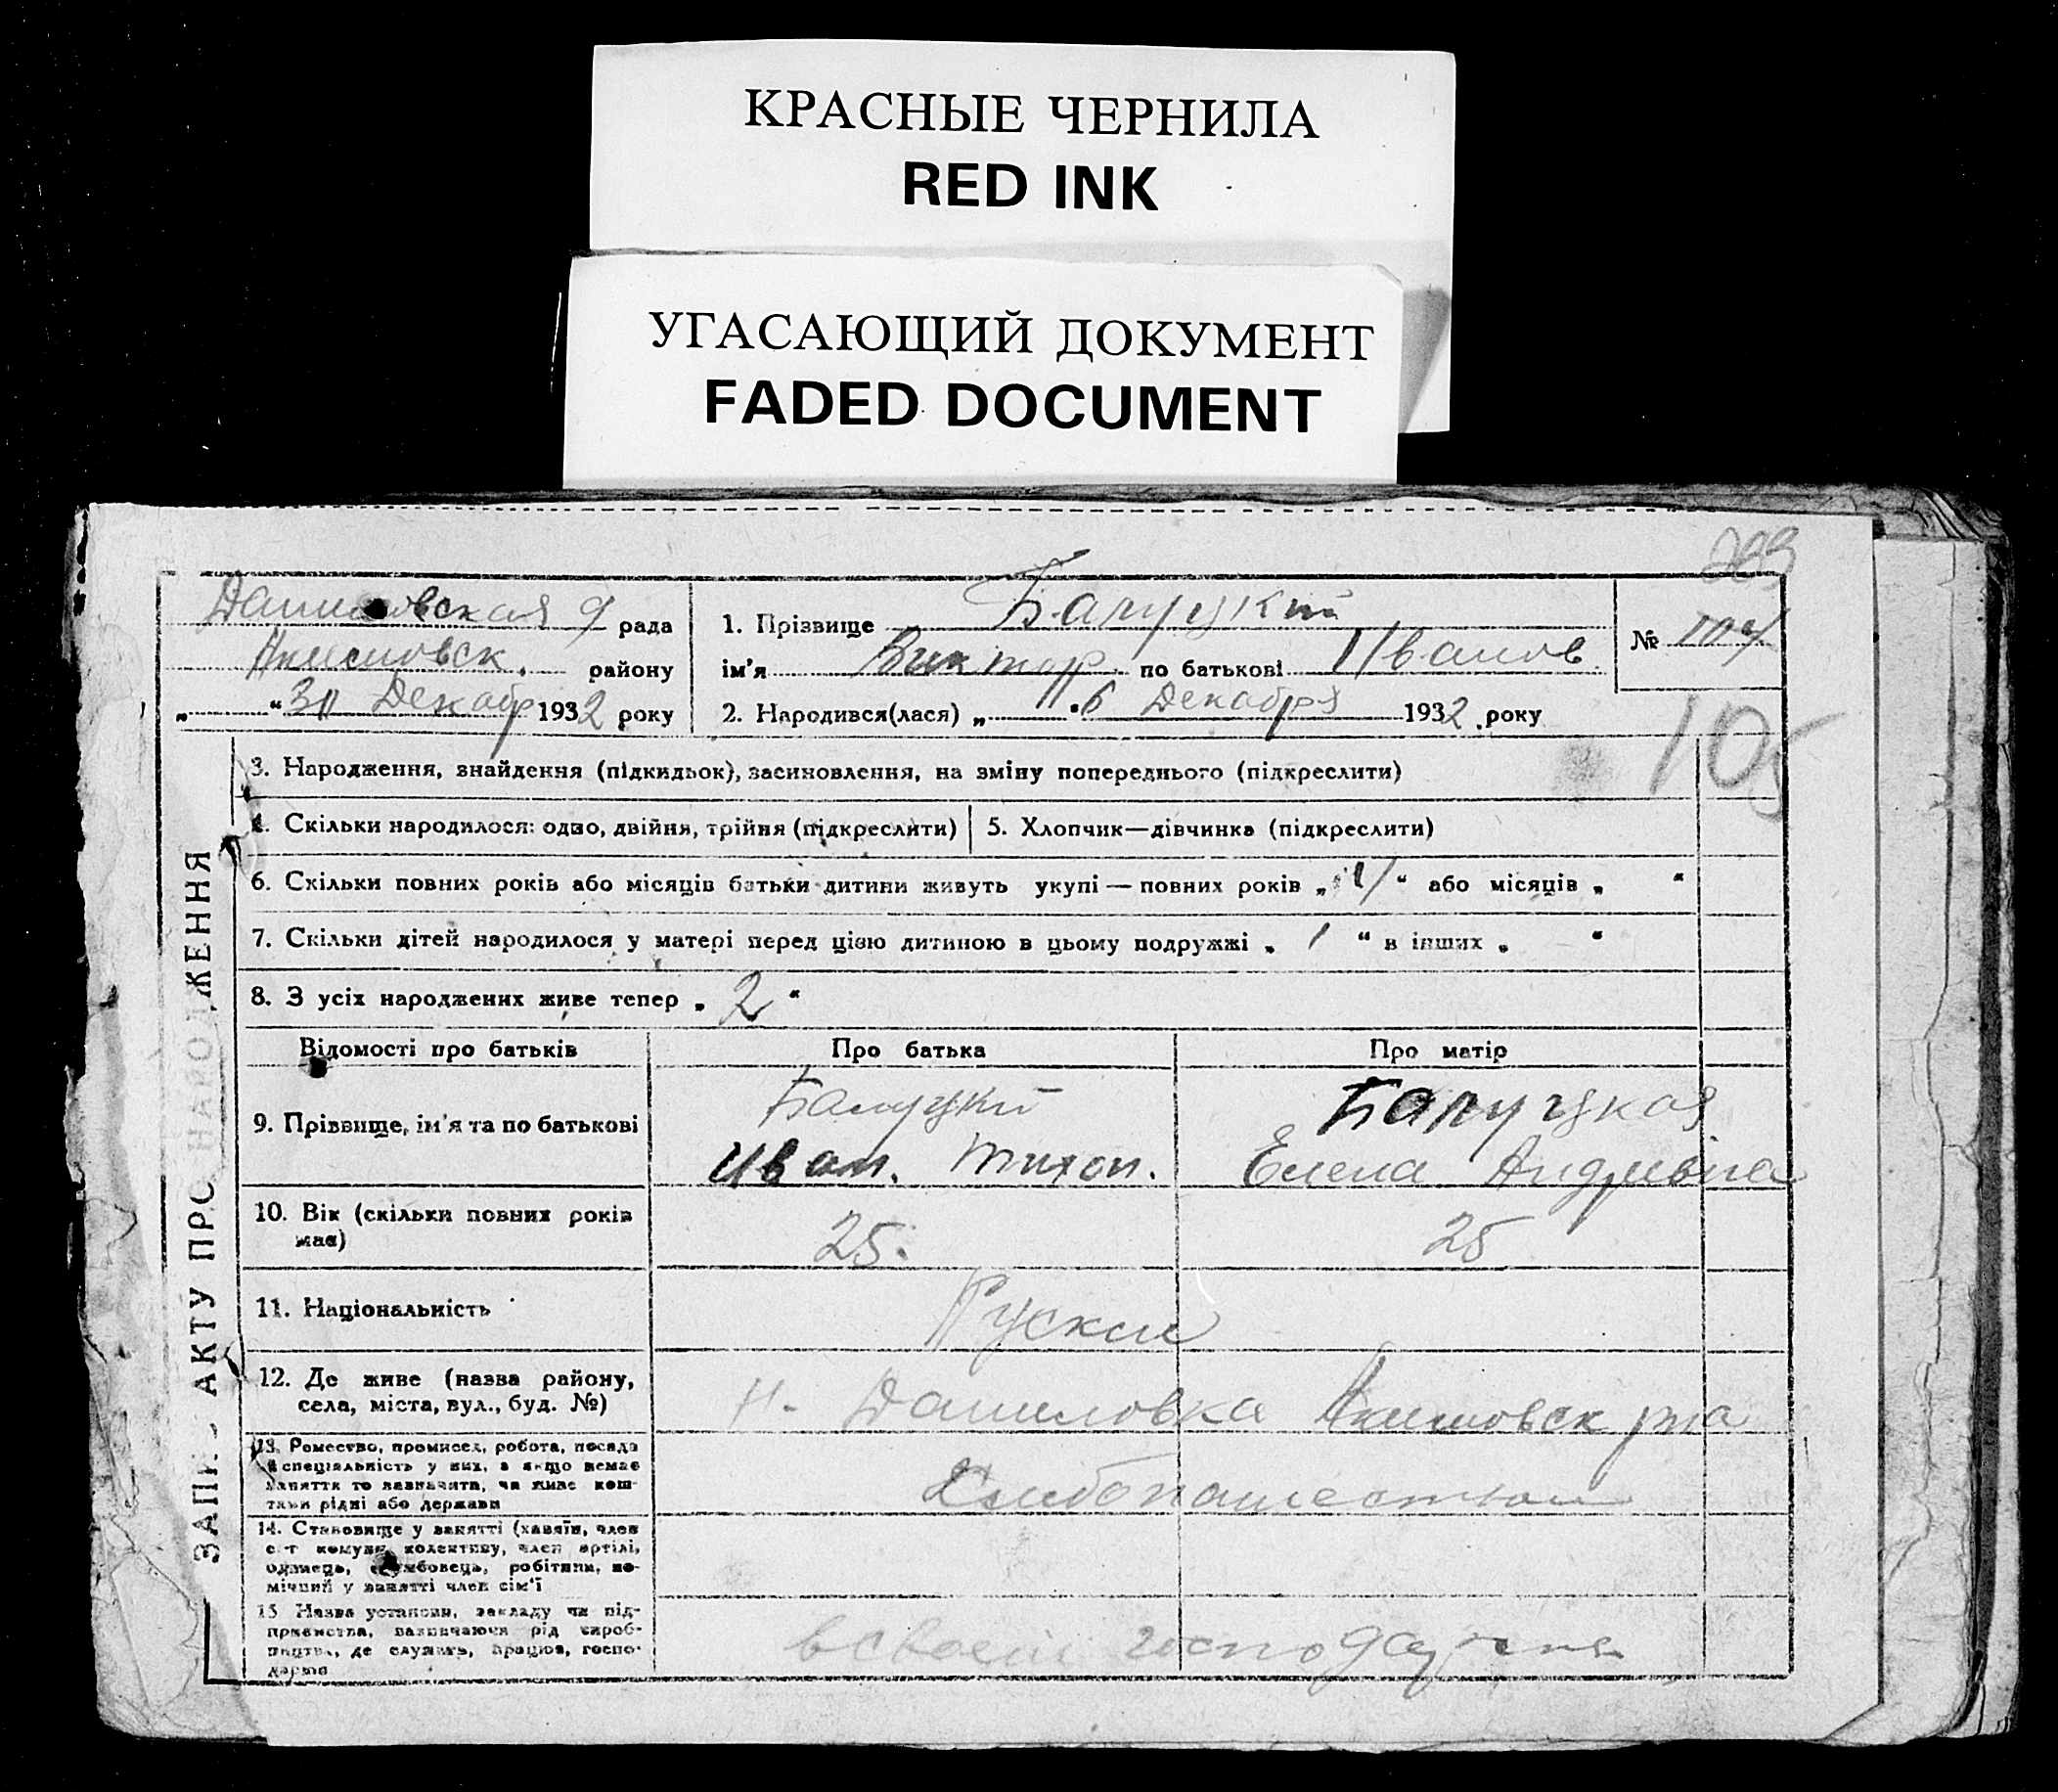 КРАСНЫЕ ЧЕРНИЛА
RED INK
УГАСАЮЩИЙ ДОКУМЕНТ
FADED DOCUMENT
Даниловская рада
Акимовск. району
„ “ 31 Декабр 1932 року
1. Прізвище Балуцкий
ім'я Виктор по батькові Иванов.
2. Народився(лася) „ “ 6 Декабря 1932 року
№ 104
105
ЗАПИС АКТУ ПРО НАРОДЖЕННЯ
3. Народження, знайдення (підкидьок), засиновлення, на зміну попереднього (підкреслити)
4. Скільки народилося: одно, двійня, трійня (підкреслити)
5. Хлопчик—дівчинка (підкреслити)
6. Скільки повних років або місяців батьки дитини живуть укупі — повних років „ “ або місяців „ “
7. Скільки дітей народилося у матері перед цією дитиною в цьому подружжі „ 1 “ в інших „ “
8. З усіх народжених живе тепер „ 2 “
Відомості про батьків Про батька Про матір
9. Прізвище, ім'я та по батькові
Балуцкий
Иван. Тихон.
Балуцкая
Елена Андривна
10. Вік (скільки повних років
має)
25. 25
11. Національність
Руские
12. Де живе (назва району,
села, міста, вул., буд. №)
Н. Даниловка Акимовск р-на
13. Ремество, промисел, робота, посада
й спеціяльність у них, а якщо немає
заняття то зазначити, чи живе кош-
тами рідні або держави
Хлибопашество
14. Становище у занятті (хазяїн, член
с-г комуни, колективу, член артілі,
одинець, службовець, робітник, по-
мічний у занятті член сім'ї
15 Назва установи, закладу чи під-
приємства, зазначаючи рід вироб-
ництва, де служить, працює, госпо-
дарює
в своем господарстве